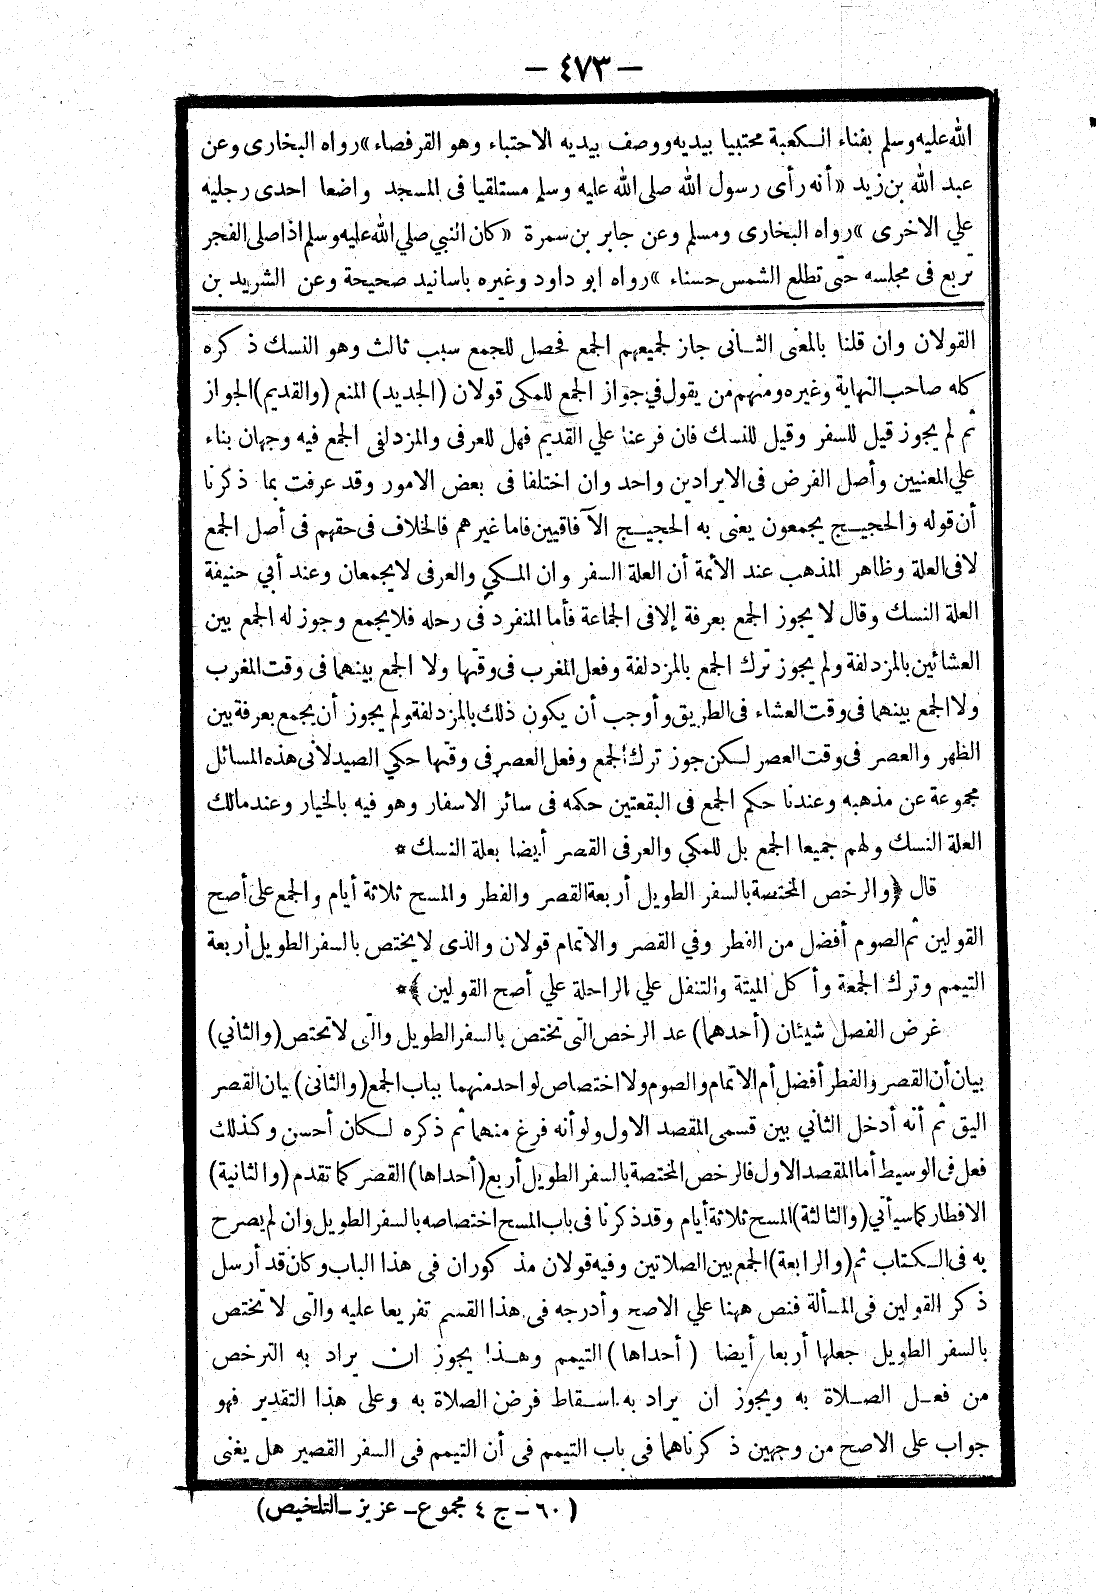 — ٤٧٣ —
الله عليه وسلم بفناء الكعبة محتبيا بيديه ووصف بيديه الاحتباء وهو القرفصاء» رواه البخارى وعن
عبد الله بن زيد «أنه رأى رسول الله صلى الله عليه وسلم مستلقيا فى المسجد واضعا احدى رجليه
علي الاخرى» رواه البخارى ومسلم وعن جابر بن سمرة «كان النبي صلي الله عليه وسلم اذا صلى الفجر
تربع فى مجلسه حتى تطلع الشمس حسناء» رواه ابو داود وغيره باسانيد صحيحة وعن الشريد بن
القولان وان قلنا بالمعنى الثانى جاز لجميعهم الجمع فحصل للجمع سبب ثالث وهو النسك ذكره
كله صاحب النهاية وغيره ومنهم من يقول في جواز الجمع للمكى قولان (الجديد) المنع (والقديم) الجواز
ثم لم يجوز قيل للسفر وقيل للنسك فان فرعنا علي القديم فهل للعرفى والمزدلفى الجمع فيه وجهان بناء
علي المعنيين وأصل الفرض فى الايرادين واحد وان اختلفا فى بعض الامور وقد عرفت بما ذكرنا
أن قوله والحجيج يجمعون يعنى به الحجيج الآفاقيين فاما غيرهم فالخلاف فى حقهم فى أصل الجمع
لا فى العلة وظاهر المذهب عند الأئمة أن العلة السفر وان المكي والعرفى لا يجمعان وعند أبي حنيفة
العلة النسك وقال لا يجوز الجمع بعرفة إلا فى الجماعة فأما المنفرد فى رحله فلا يجمع وجوز له الجمع بين
العشائين بالمزدلفة ولم يجوز ترك الجمع بالمزدلفة وفعل المغرب فى وقتها ولا الجمع بينهما فى وقت المغرب
ولا الجمع بينهما فى وقت العشاء فى الطريق وأوجب أن يكون ذلك بالمزدلفة ولم يجوز أن يجمع بعرفة بين
الظهر والعصر فى وقت العصر لكن جوز ترك الجمع وفعل العصر فى وقتها حكي الصيدلانى هذه المسائل
مجموعة عن مذهبه وعندنا حكم الجمع فى البقعتين حكمه فى سائر الاسفار وهو فيه بالخيار وعند مالك
العلة النسك ولهم جميعا الجمع بل للمكي والعرفى القصر أيضا بعلة النسك *
قال ﴿والرخص المختصة بالسفر الطويل أربعة القصر والفطر والمسح ثلاثة أيام والجمع على أصح
القولين ثم الصوم أفضل من الفطر وفي القصر والاتمام قولان والذى لا يختص بالسفر الطويل أربعة
التيمم وترك الجمعة وأكل الميتة والتنفل علي الراحلة علي أصح القولين﴾ *
غرض الفصل شيئان (أحدهما) عد الرخص التى تختص بالسفر الطويل والتى لا تختص (والثاني)
بيان أن القصر والفطر أفضل أم الاتمام والصوم ولا اختصاص لواحد منهما بباب الجمع (والثانى) بيان القصر
اليق ثم أنه أدخل الثاني بين قسمى المقصد الاول ولو أنه فرغ منهما ثم ذكره لكان أحسن وكذلك
فعل فى الوسيط أما المقصد الاول فالرخص المختصة بالسفر الطويل أربع (أحداها) القصر كما تقدم (والثانية)
الافطار كما سيأتي (والثالثة) المسح ثلاثة أيام وقد ذكرنا فى باب المسح اختصاصه بالسفر الطويل وان لم يصرح
به فى الكتاب ثم (والرابعة) الجمع بين الصلاتين وفيه قولان مذكوران فى هذا الباب وكان قد أرسل
ذكر القولين فى المسألة فنص ههنا علي الاصح وأدرجه فى هذا القسم تفريعا عليه والتى لا تختص
بالسفر الطويل جعلها أربعا أيضا (أحداها) التيمم وهذا يجوز ان يراد به الترخص
من فعل الصلاة به ويجوز ان يراد به اسقاط فرض الصلاة به وعلى هذا التقدير فهو
جواب على الاصح من وجهين ذكرناهما فى باب التيمم فى أن التيمم فى السفر القصير هل يغنى
(٦٠ - ج ٤ مجموع - عزيز - التلخيص)